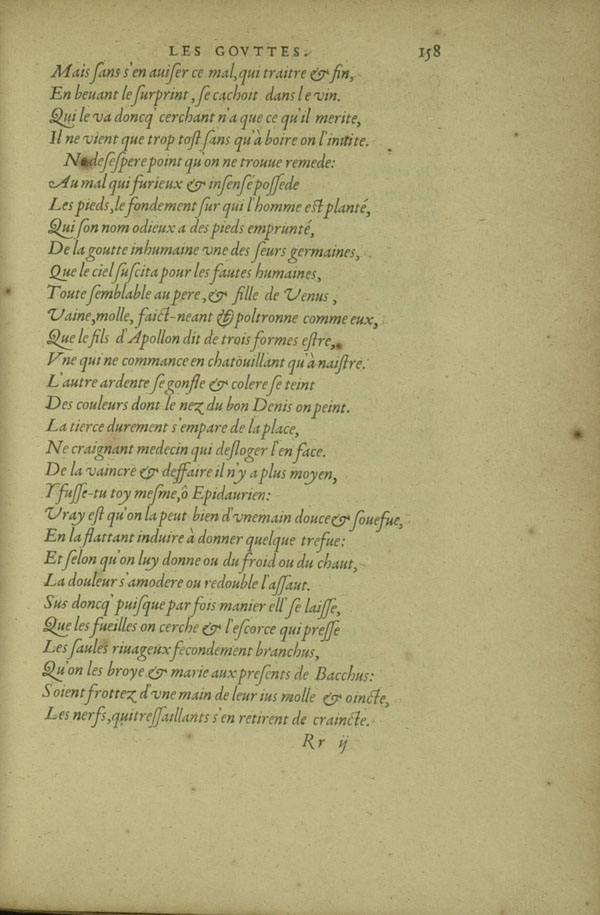 LES GOVTTES. 158
Mais ſans s'en auiſer ce mal, qui traitre & fin,
En beuant le ſurprint, ſe cachoit dans le vin.
Qui le va doncq' cerchant n'a que ce qu'il merite,
Il ne vient que trop toſt ſans qu'à boire on l'inuite.
Ne deſeſpere point qu'on ne trouue remede:
Au mal qui furieux & inſenſé poſſede
Les pieds, le fondement ſur qui l'homme eſt planté,
Qui ſon nom odieux a des pieds emprunté,
De la goutte inhumaine vne des ſeurs germaines,
Que le ciel ſuſcita pour les fautes humaines,
Toute ſemblable au pere, & fille de Venus,
Vaine, molle, faict-neant & poltronne comme eux,
Que le fils d'Apollon dit de trois formes eſtre,
Vne qui ne commance en chatoüillant qu'à naiſtre.
L'autre ardente ſe gonfle & colere ſe teint
Des couleurs dont le nez du bon Denis on peint.
La tierce durement s'empare de la place,
Ne craignant medecin qui deſloger l'en face.
De la vaincre & deffaire il n'y a plus moyen,
Y fuſſe-tu toy meſme, ô Epidaurien:
Vray eſt qu'on la peut bien d'vne main douce & ſouefue,
En la flattant induire à donner quelque trefue:
Et ſelon qu'on luy donne ou du froid ou du chaut,
La douleur s'amodere ou redouble l'aſſaut.
Sus doncq' puiſque par fois manier ell' ſe laiſſe,
Que les fueilles on cerche & l'eſcorce qui preſſe
Les ſaules riuageux fecondement branchus,
Qu'on les broye & marie aux preſents de Bacchus:
Soient frottez d'vne main de leur ius molle & oincte,
Les nerfs, qui treſſaillants s'en retirent de craincte.
Rr ij